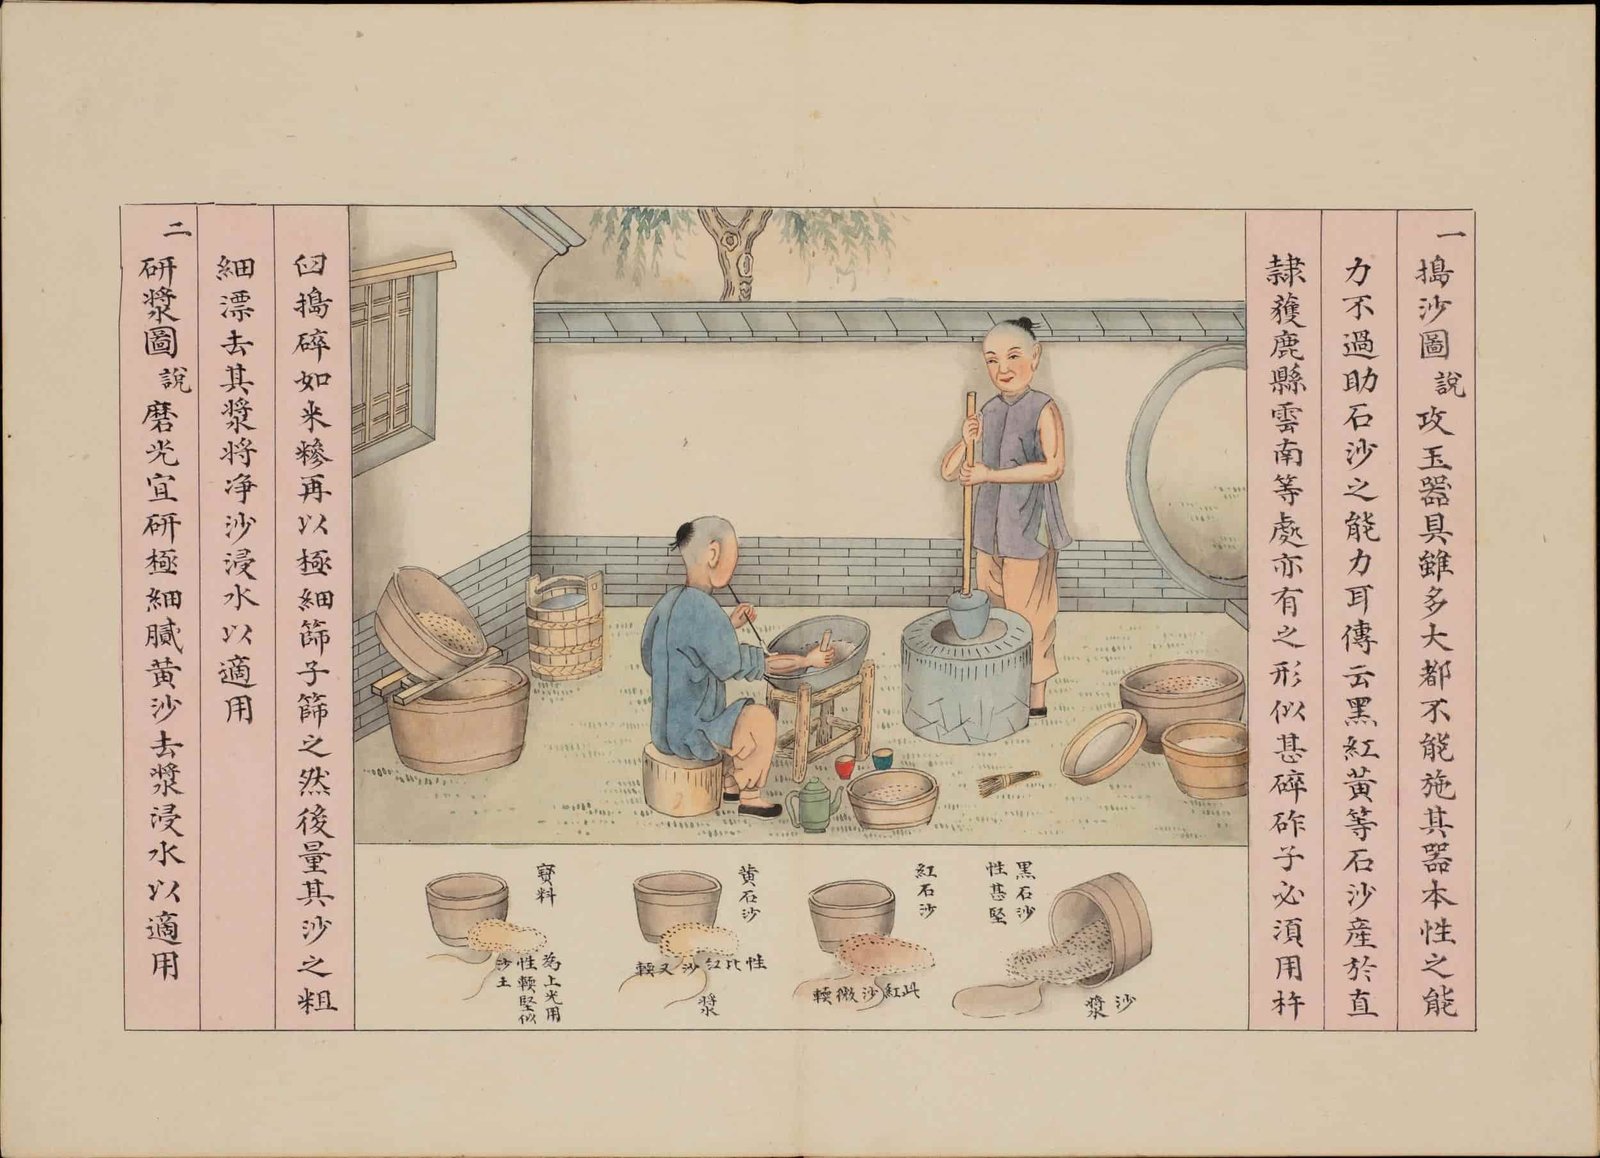 一
搗沙圖說攻玉器具雖多大都不能施其器本性之能
力不過助石沙之能力耳傳云黑紅黃等石沙產於直
隸獲鹿縣雲南等處亦有之形似甚碎砟子必須用杵
臼搗碎如米糝再以極細篩子篩之然後量其沙之粗
細漂去其漿將净沙浸水以適用
二
研漿圖說磨光宜研極細膩黄沙去漿浸水以適用
黑石沙
性甚堅
沙漿
紅石沙
此紅沙微輭
黃石沙
性比紅沙又輭
漿
寶料
為上光用
性輭堅似
沙土